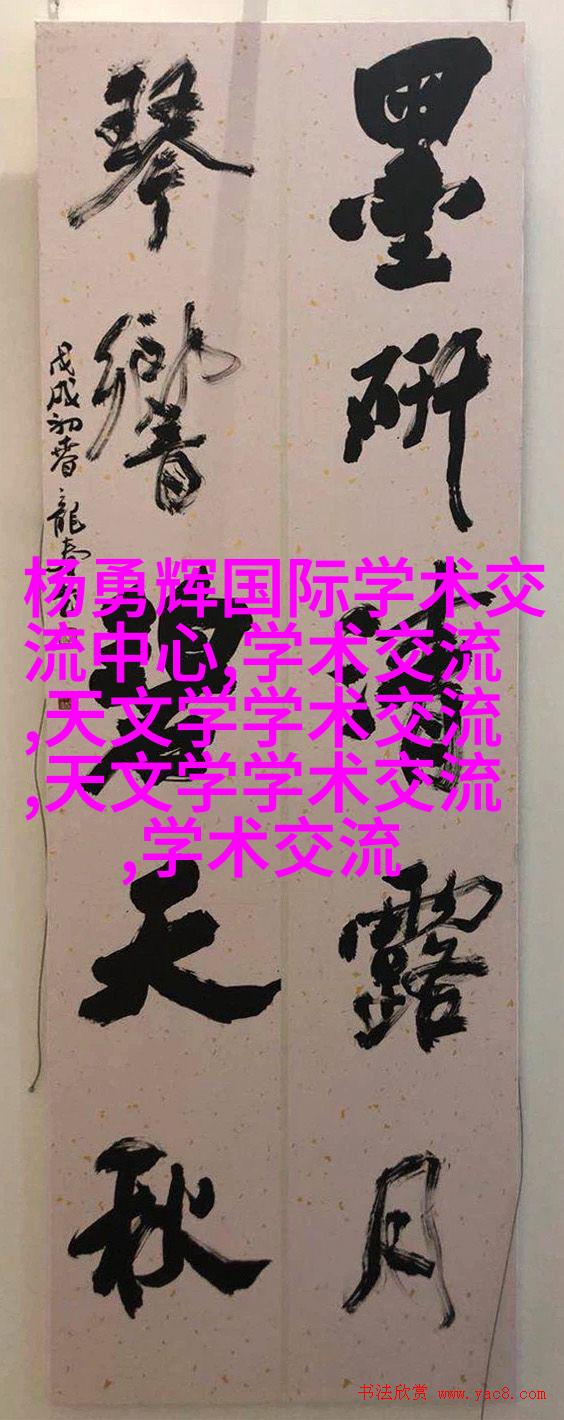 墨研清露月
琴響碧天秋
戊戌初春龍
杨勇辉国际学术交
流中心,学术交流
,天文学学术交流
,天文学学术交流
,学术交流
书法欣赏 www.yac8.com